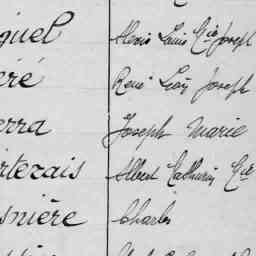 quel Alexis Louis Cie Joseph
éré René Léon Joseph
erra Joseph Marie
rterais Albert Mathurin Cie
snière Charles